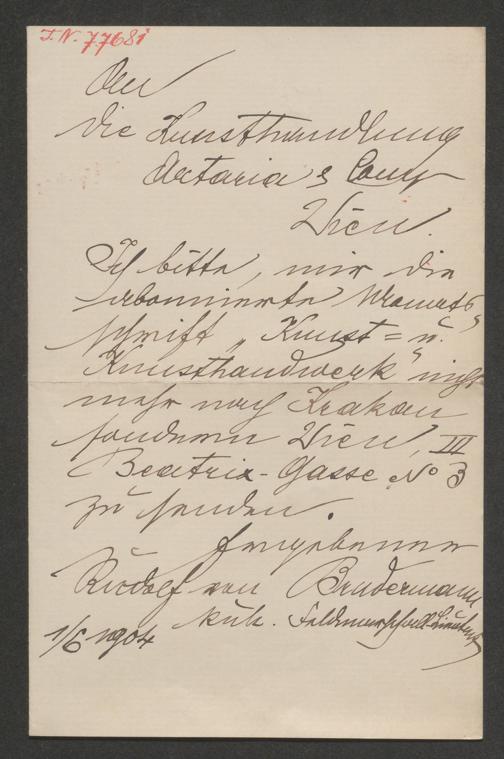 I.N. 77681
An
die Kunsthandlung
Artaria & Comp
Wien.
Ich bitte, mir die
abonnierte Monats
schrift „Kunst= u.
Kunsthandwerk" nicht
mehr nach Krakau
sondern Wien, III
Beatrix-Gasse No 3
zu senden.
Ergebener
Rudolf von Brudermann
kuk. Feldmarschall-Lieutent
1/6 1904